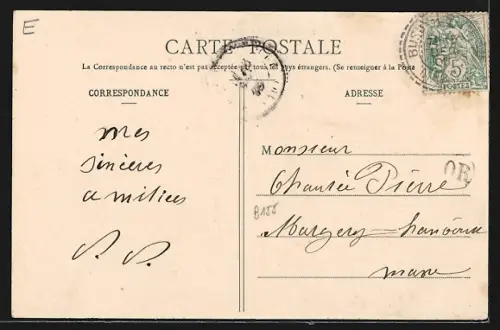 E
CARTE POSTALE
La Correspondance au recto n'est pas acceptée par tous les pays étrangers. (Se renseigner à la Poste
CORRESPONDANCE
ADRESSE
mes
sincères
amitiées
Monsieur
Pierre
B155
Margery-hancourt
Marne
5c
POSTES
OR